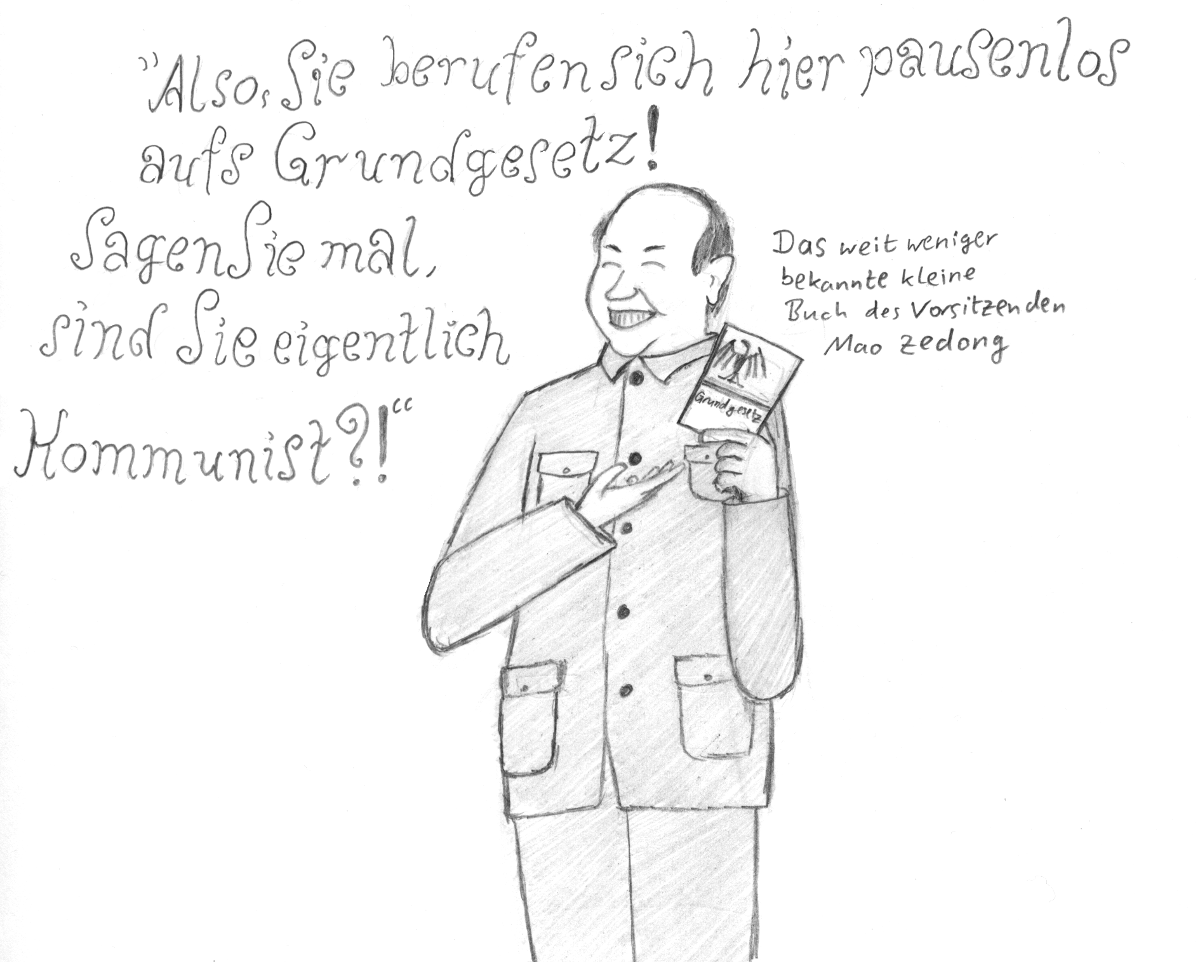 "Also, Sie berufen sich hier pausenlos
aufs Grundgesetz!
Sagen Sie mal,
sind Sie eigentlich
Kommunist?!“
Das weit weniger
bekannte kleine
Buch des Vorsitzenden
Mao Zedong
Grundgesetz